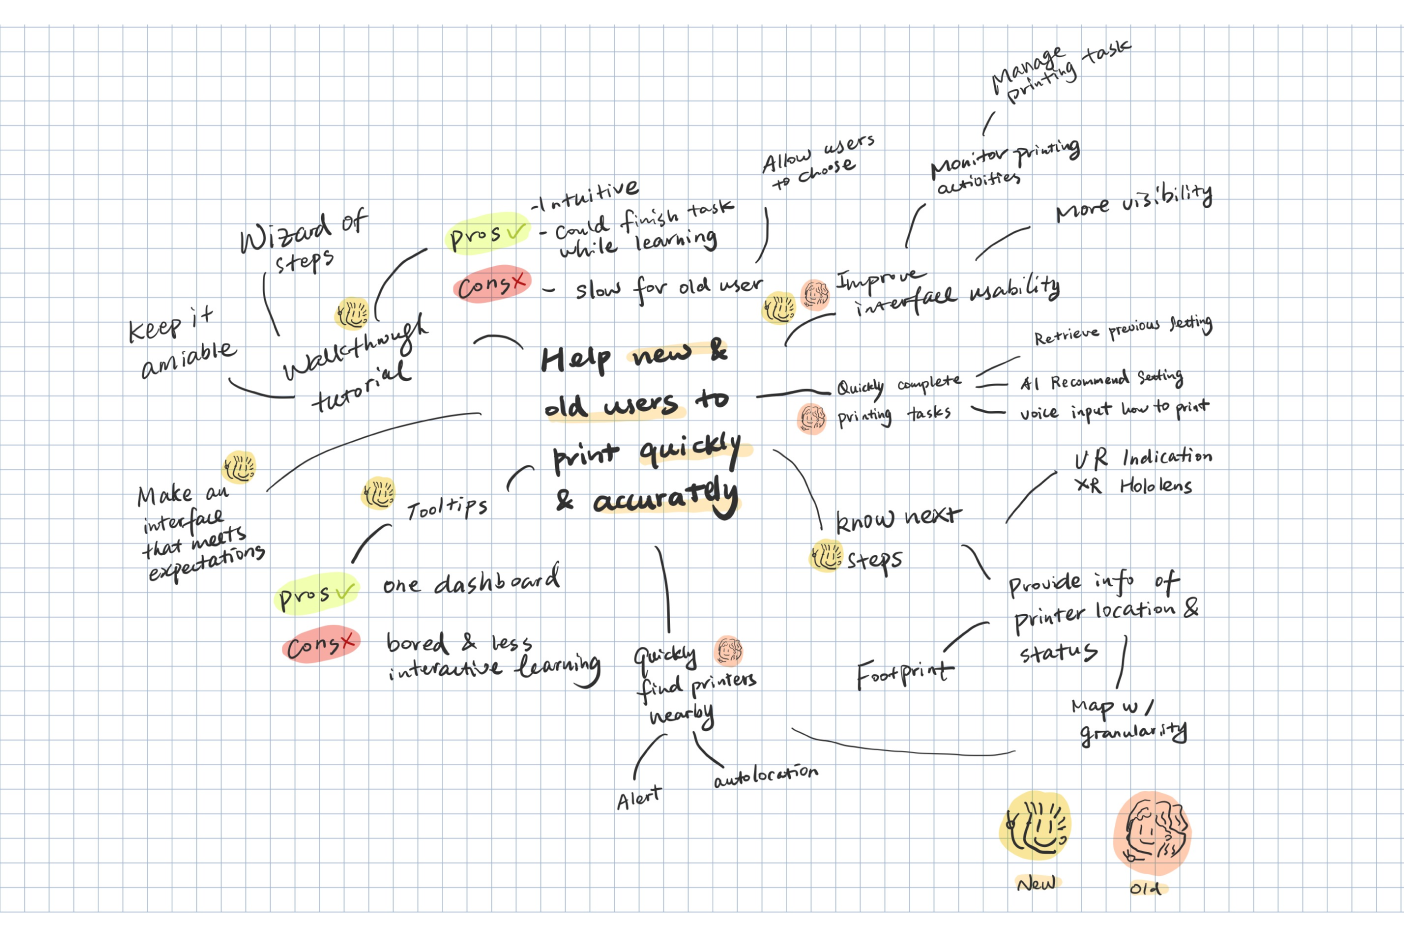 Manage
printing task
Monitor printing
activities
More visibility
Improve
interface usability
Allow users
to choose
Wizard of
steps
Keep it
amiable
Walkthrough
tutorial
pros ✓
-Intuitive
- Could finish task
while learning
Cons x
- slow for old user
Help new &
old users to
print quickly
& accurately
Quickly complete
printing tasks
Retrieve previous setting
AI Recommend Setting
voice input how to print
Make an
interface
that meets
expectations
Tooltips
pros ✓
one dashboard
Cons x
bored & less
interactive learning
know next
steps
VR Indication
XR Hololens
Provide info of
printer location &
status
Footprint
Map w/
granularity
Quickly
find printers
nearby
Alert
autolocation
New
Old